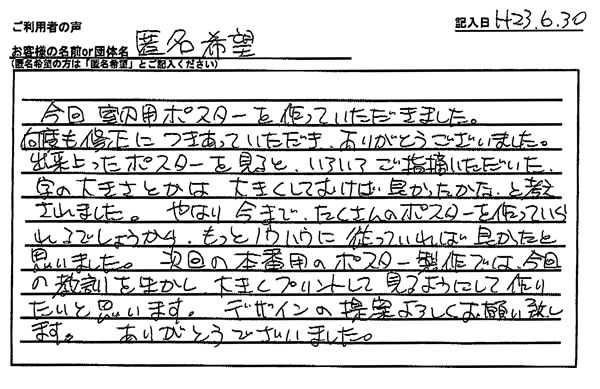 ご利用者の声
記入日 H23.6.30
お客様の名前or団体名 匿名希望
(匿名希望の方は「匿名希望」とご記入ください)
今回 室内用ポスターを作っていただきました。
何度も修正につきあっていただき、ありがとうございました。
出来上ったポスターを見ると、いろいろご指摘いただいた、
字の大きさとかは 大きくしておけば良かったかな、と教
されました。 やはり今まで、たくさんのポスターを作っていら
れるでしょうから、もっとノウハウに従っていれば良かったと
思いました。 次回の本番用のポスター製作では、今回
の教訓を生かし、大きくプリントして見るようにして作り
たいと思います。 デザインの提案よろしくお願い致し
ます。 ありがとうございました。